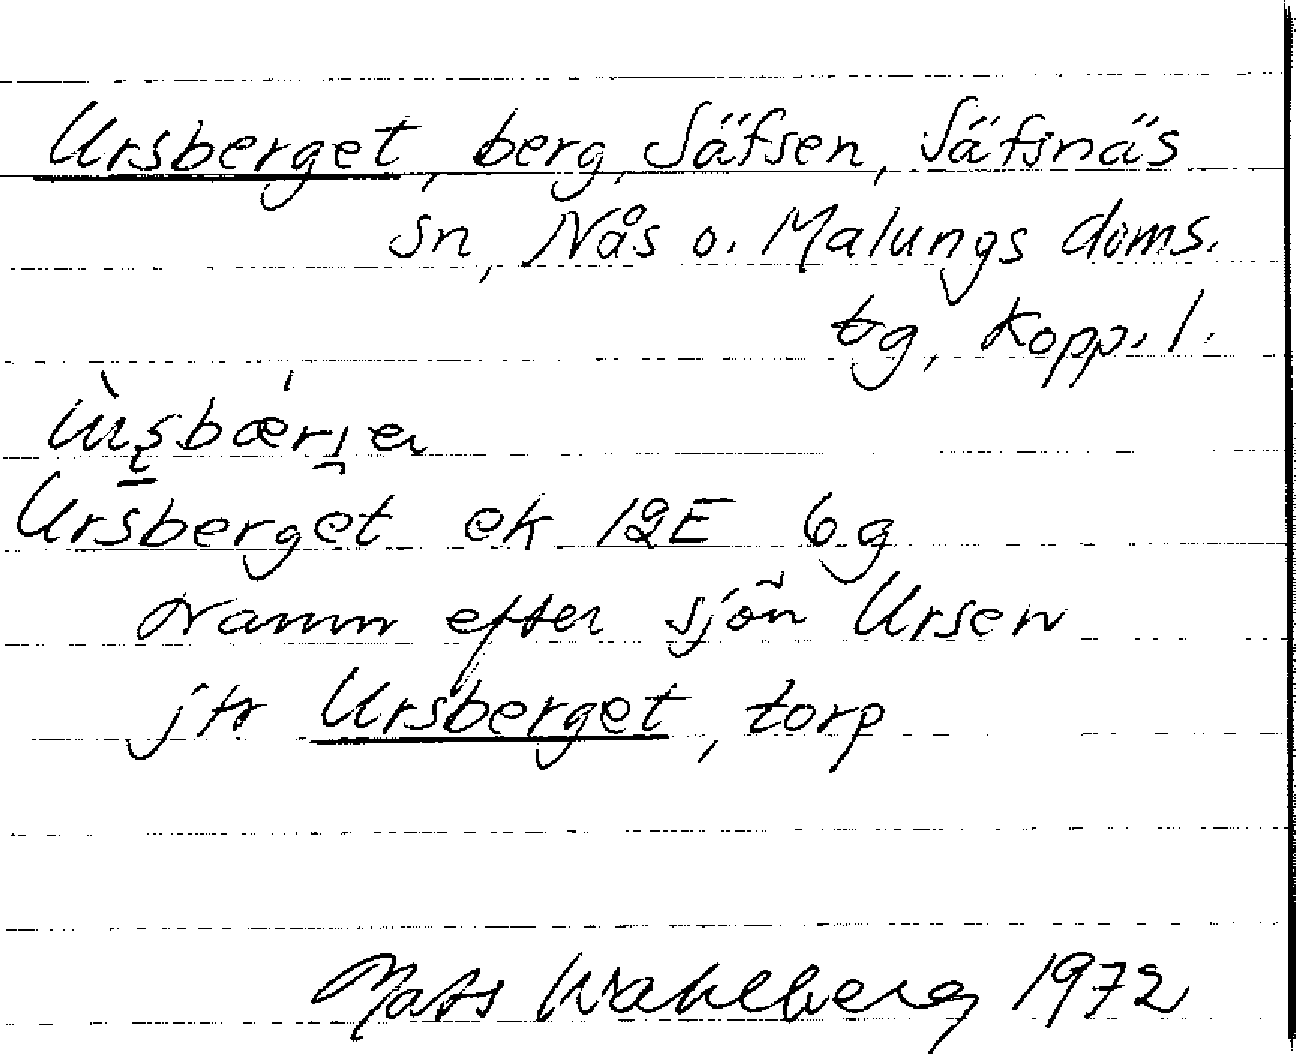 Ursberget, berg, Säfsen, Säfsnäs
sn, Nås o. Malungs doms.
tg, Kopp. l.
Ursberget ek 12E 6g
namn efter sjön Ursen
jfr Ursberget, torp
Mats Wahlberg 1972